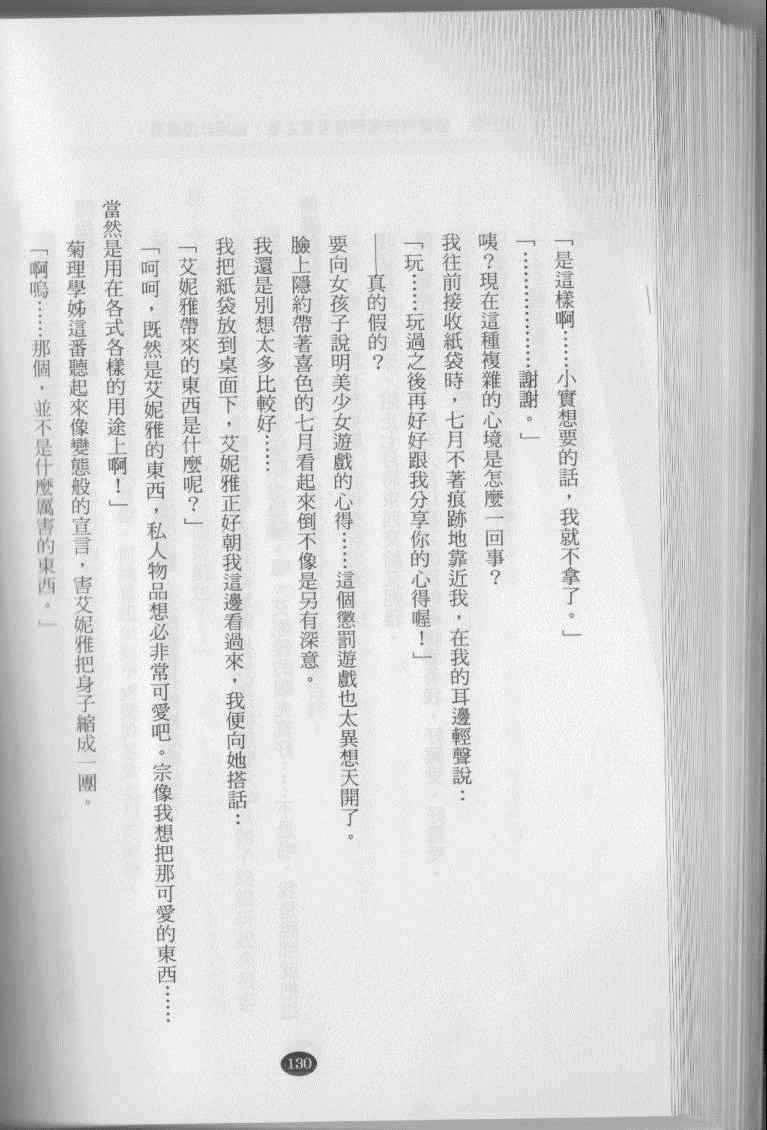 「是這樣啊……小實想要的話，我就不拿了。」
「………………謝謝。」
咦？現在這種複雜的心境是怎麼一回事？
我往前接收紙袋時，七月不著痕跡地靠近我，在我的耳邊輕聲說：
「玩……玩過之後再好好跟我分享你的心得喔！」
——真的假的？
要向女孩子說明美少女遊戲的心得……這個懲罰遊戲也太異想天開了。
臉上隱約帶著喜色的七月看起來倒不像是另有深意。
我還是別想太多比較好……
我把紙袋放到桌面下，艾妮雅正好朝我這邊看過來，我便向她搭話：
「艾妮雅帶來的東西是什麼呢？」
「呵呵，既然是艾妮雅的東西，私人物品想必非常可愛吧。宗像我想把那可愛的東西……
當然是用在各式各樣的用途上啊！」
菊理學姊這番聽起來像變態般的宣言，害艾妮雅把身子縮成一團。
「啊嗚……那個，並不是什麼厲害的東西。」
130